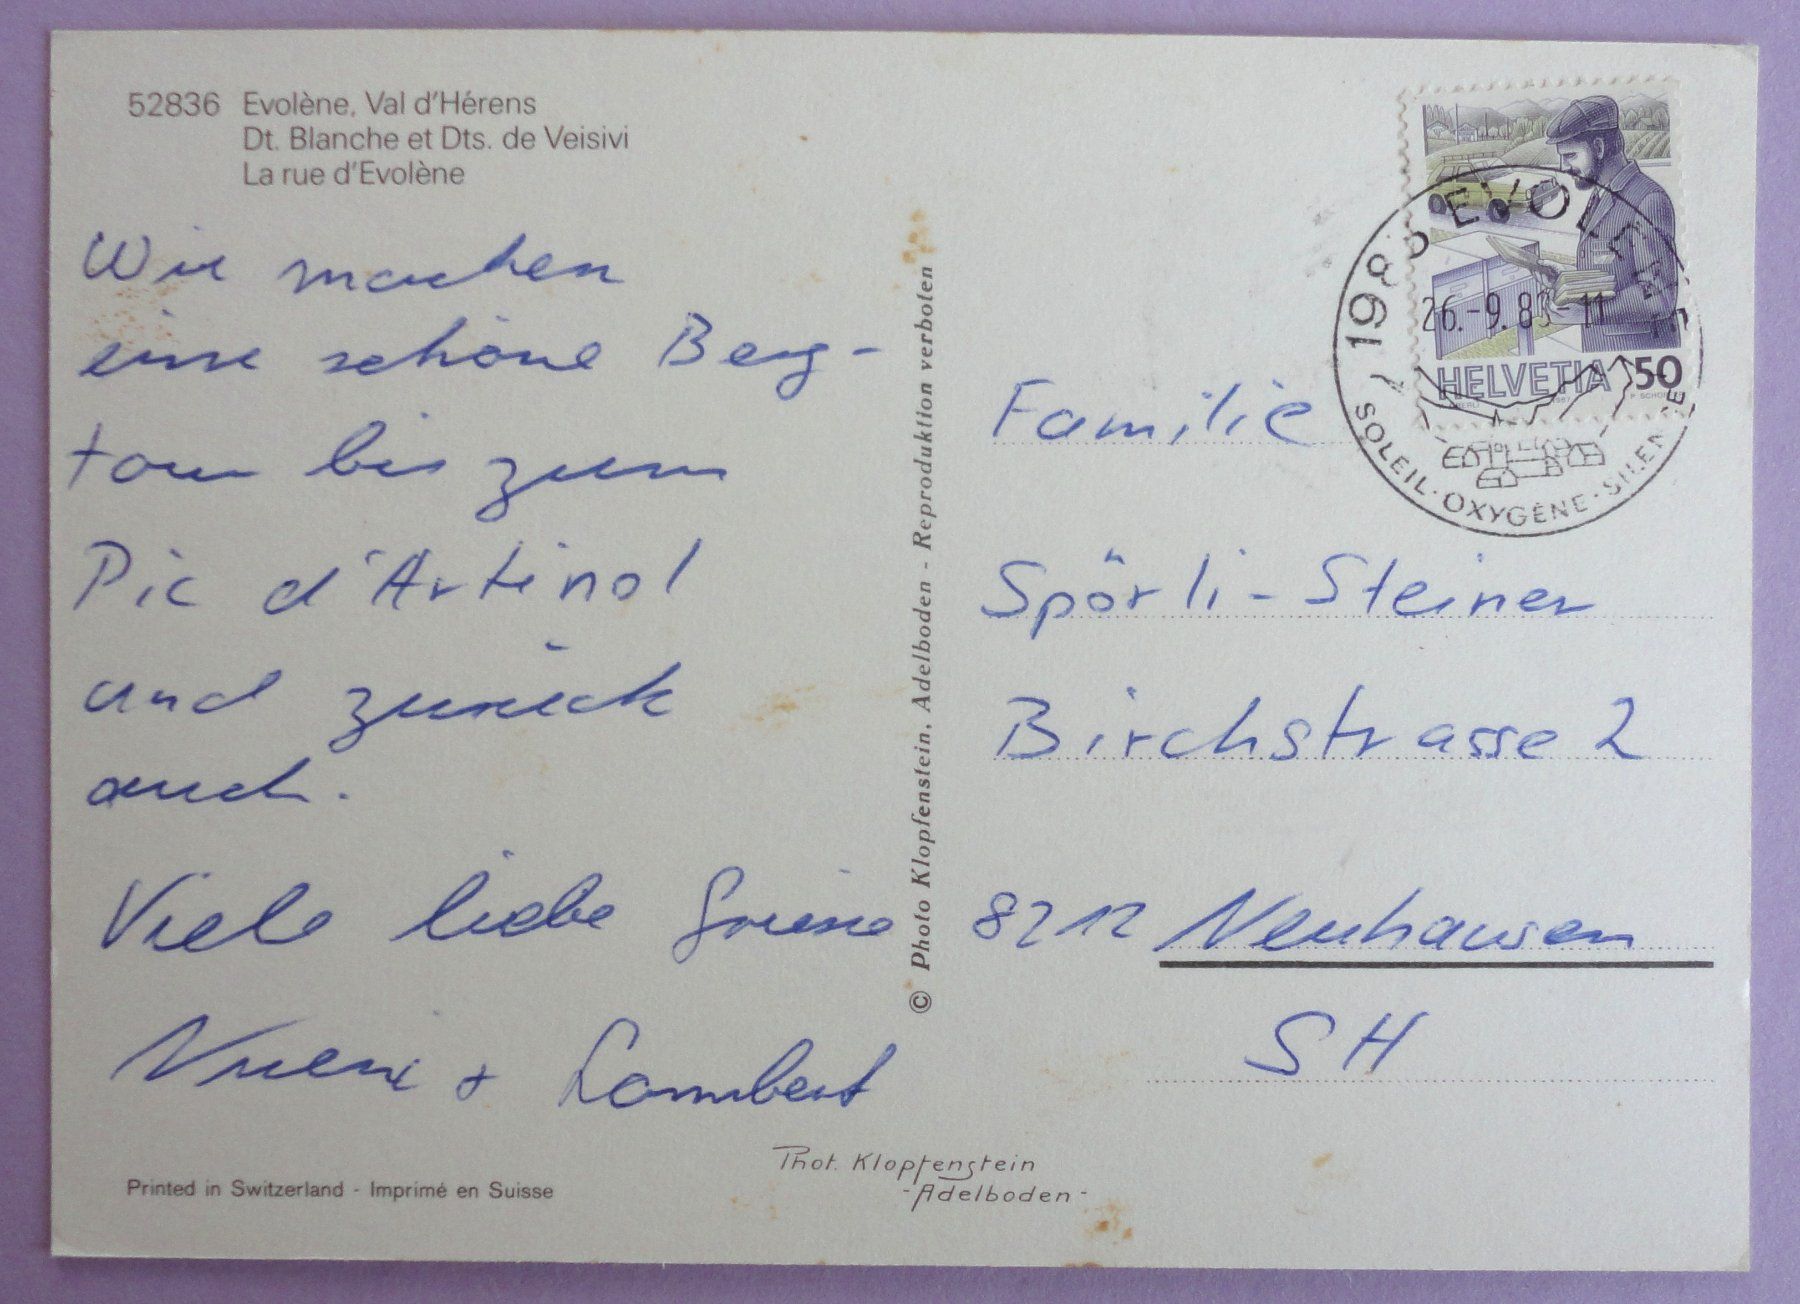 52836 Evolène, Val d'Hérens
Dt. Blanche et Dts. de Veisivi
La rue d'Evolène
Wir machen
eine schöne Berg-
tour bis zum
Pic d'Artsinol
und zurück
auch.
Viele liebe Grüsse
Vreni + Lambert
Printed in Switzerland - Imprimé en Suisse
© Photo Klopfenstein, Adelboden - Reproduktion verboten
Phot. Klopfenstein
-Adelboden-
HELVETIA 50
1983 EVOLENE
26.-9.8 -11
SOLEIL·OXYGÈNE·SILENCE
Familie
Spörli-Steiner
Birchstrasse 2
8212 Neuhausen
SH